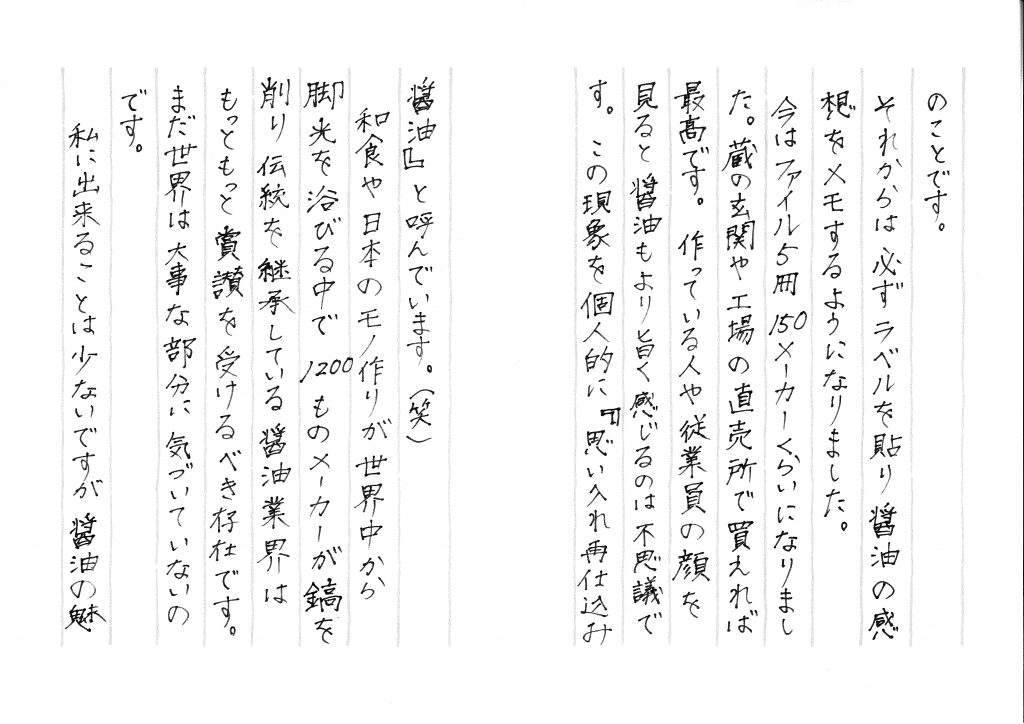 のことです。
それからは必ずラベルを貼り醤油の感
想をメモするようになりました。
今はファイル5冊150メーカーくらいになりまし
た。蔵の玄関や工場の直売所で買えれば
最高です。作っている人や従業員の顔を
見ると醤油もより旨く感じるのは不思議で
す。この現象を個人的に『思い入れ再仕込み
醤油』と呼んでいます。(笑)
和食や日本のモノ作りが世界中から
脚光を浴びる中で1200ものメーカーが鎬を
削り伝統を継承している醤油業界は
もっともっと賞讃を受けるべき存在です。
まだ世界は大事な部分に気づいていないの
です。
私に出来ることは少ないですが醤油の魅